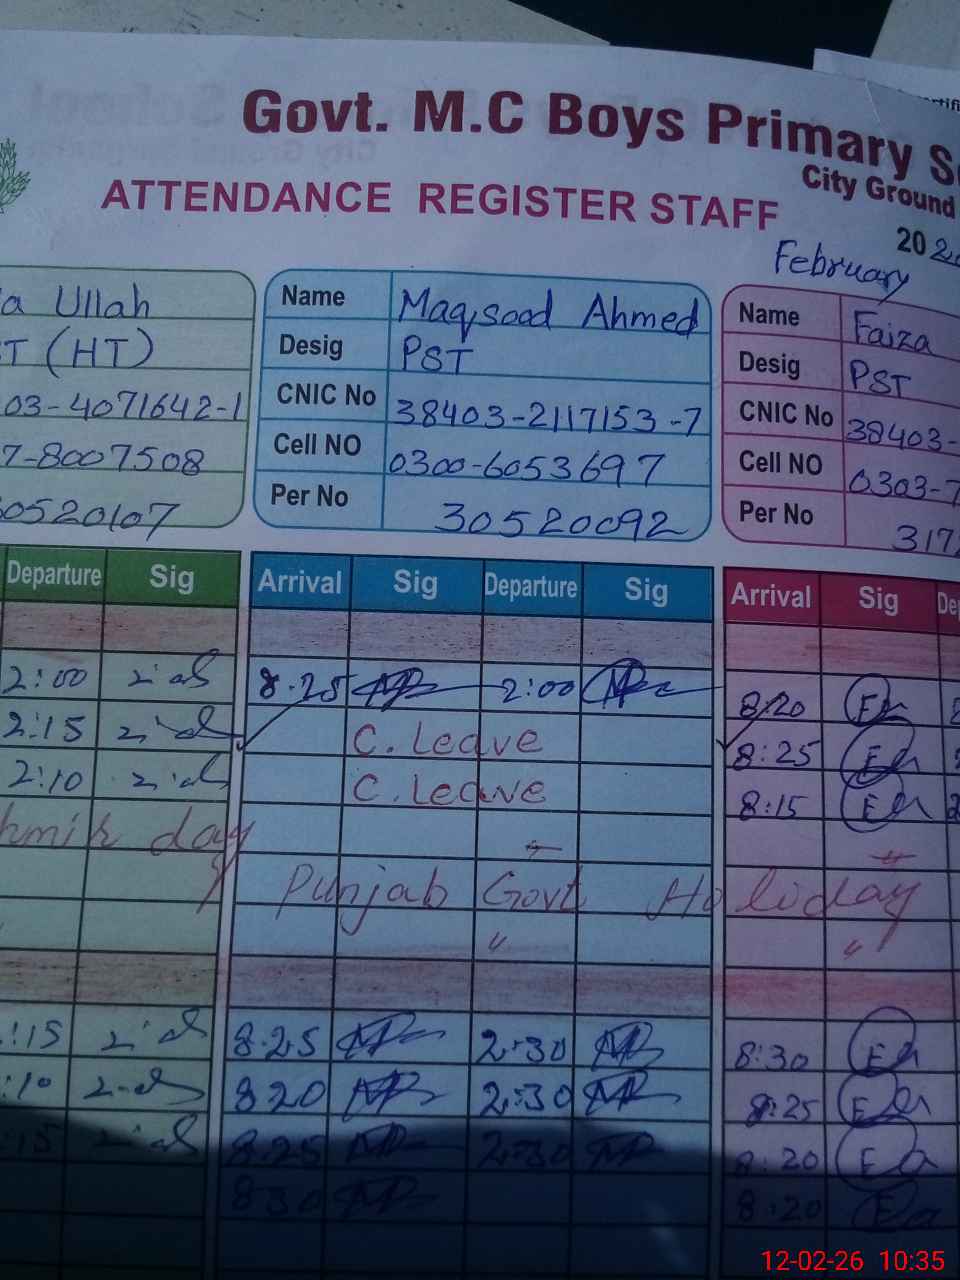 Govt. M.C Boys Primary
City Ground
ATTENDANCE REGISTER STAFF
20
February
a Ullah
T (HT)
03-4071642-1
7-8007508
0520107
Name Maqsood Ahmed
Desig PST
CNIC No 38403-2117153-7
Cell NO 0300-6053697
Per No 30520092
Name Faiza
Desig PST
CNIC No 38403-
Cell NO 0303-7
Per No 317
Departure Sig Arrival Sig Departure Sig Arrival Sig
2:00 8.25 2:00 8:20
2:15 C. Leave 8:25
2:10 C. Leave 8:15
day
Punjab Govt Holiday
〃 〃
:15 8.25 2:30 8:30
:10 8 20 2:30 8:25
:15 8.25 2:30 8:20
8 30 8:20
12-02-26 10:35